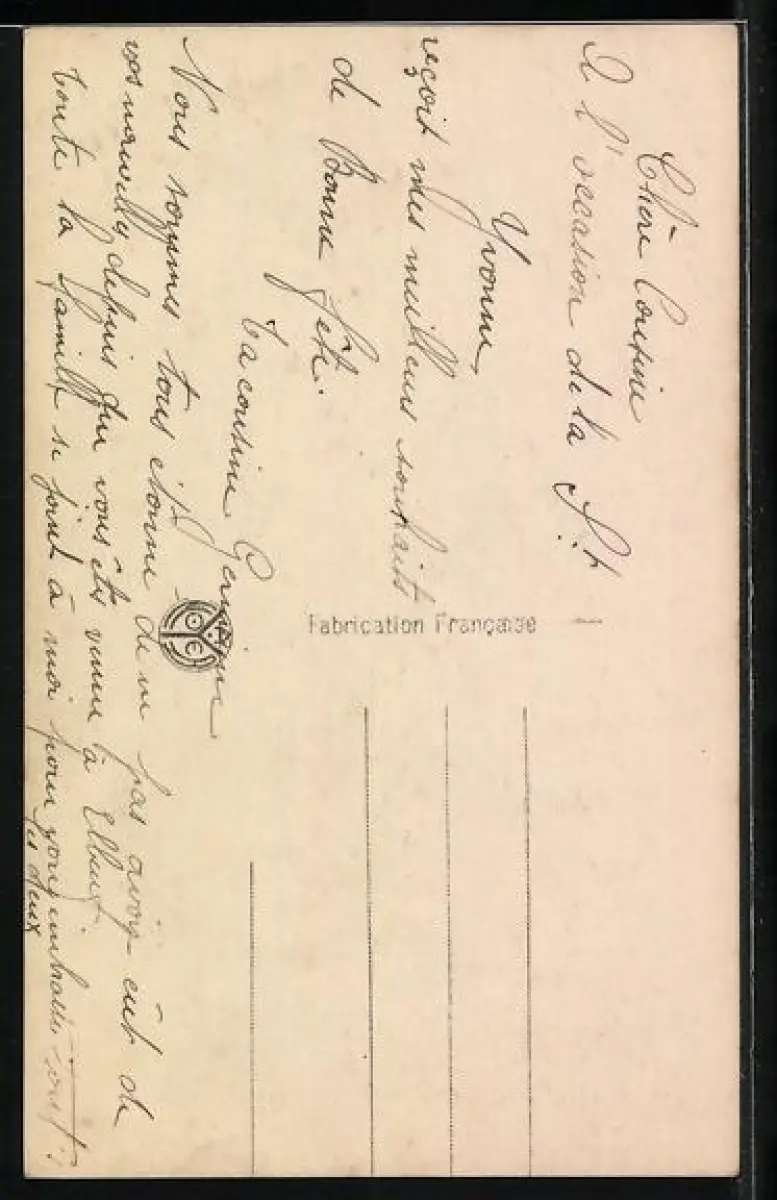 Chère Cousine
A l'occasion de la St
Yvonne,
reçoit mes meilleurs souhaits
de Bonne fête.
Ta cousine Germaine
Nous sommes tous étonné de ne pas avoir eût de
vos nouvelles depuis que vous êtes venue à Elbeuf
toute la famille se joint à moi pour vous
les deux
Fabrication Française